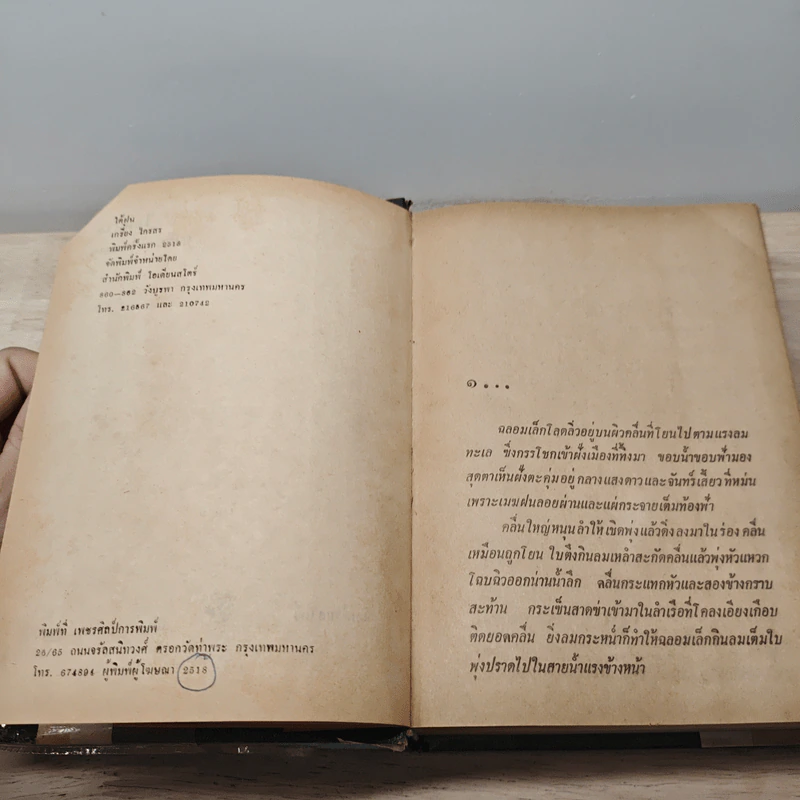 ใต้ฝุ่น
เกรื่อง ไกรสร
พิมพ์ครั้งแรก 2518
จัดพิมพ์จำหน่ายโดย
สำนักพิมพ์ โอเดียนสโตร์
860—862 วังบูรพา กรุงเทพมหานคร
โทร. 216567 และ 210742
พิมพ์ที่ เพชรศิลป์การพิมพ์
26/65 ถนนจรัลสนิทวงศ์ ตรอกวัดท่าพระ กรุงเทพมหานคร
โทร. 674894 ผู้พิมพ์ผู้โฆษณา 2518
๑ . . .
ฉลอมเล็กโลดลิ่วอยู่บนผิวคลื่นที่โยนไปตามแรงลม
ทะเล ซึ่งกรรโชกเข้าฝั่งเมืองที่ทิ้งมา ขอบน้ำขอบฟ้ามอง
สุดตาเห็นฝั่งตะคุ่มอยู่กลางแสงดาวและจันทร์เสี้ยวที่หม่น
เพราะเมฆฝนลอยผ่านและแผ่กระจายเต็มท้องฟ้า
คลื่นใหญ่หนุนลำให้เชิดพุ่งแล้วดิ่งลงมาในร่องคลื่น
เหมือนถูกโยน ใบตึงกินลมเหลำสะกัดคลื่นแล้วพุ่งหัวแหวก
โฉบฉิวออกน่านน้ำลึก คลื่นกระแทกหัวและสองข้างกราบ
สะท้าน กระเซ็นสาดซ่าเข้ามาในลำเรือที่โคลงเอียงเกือบ
ติดยอดคลื่น ยิ่งลมกระหน่ำก็ทำให้ฉลอมเล็กกินลมเต็มใบ
พุ่งปราดไปในสายน้ำแรงข้างหน้า